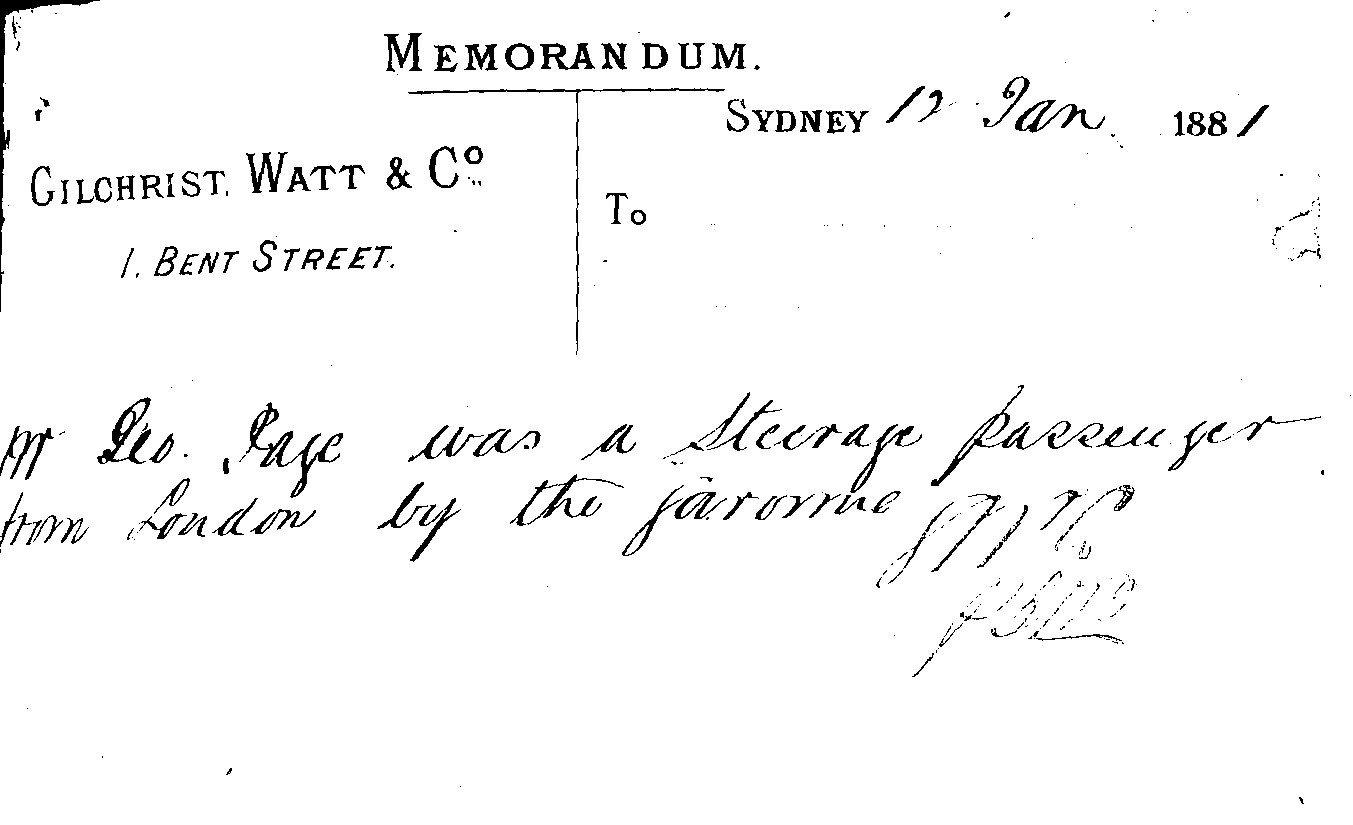 MEMORANDUM.
SYDNEY 12 Jan 1881
GILCHRIST, WATT & Co.
1. BENT STREET.
To
Mr Geo. Page was a Steerage passenger
from London by the